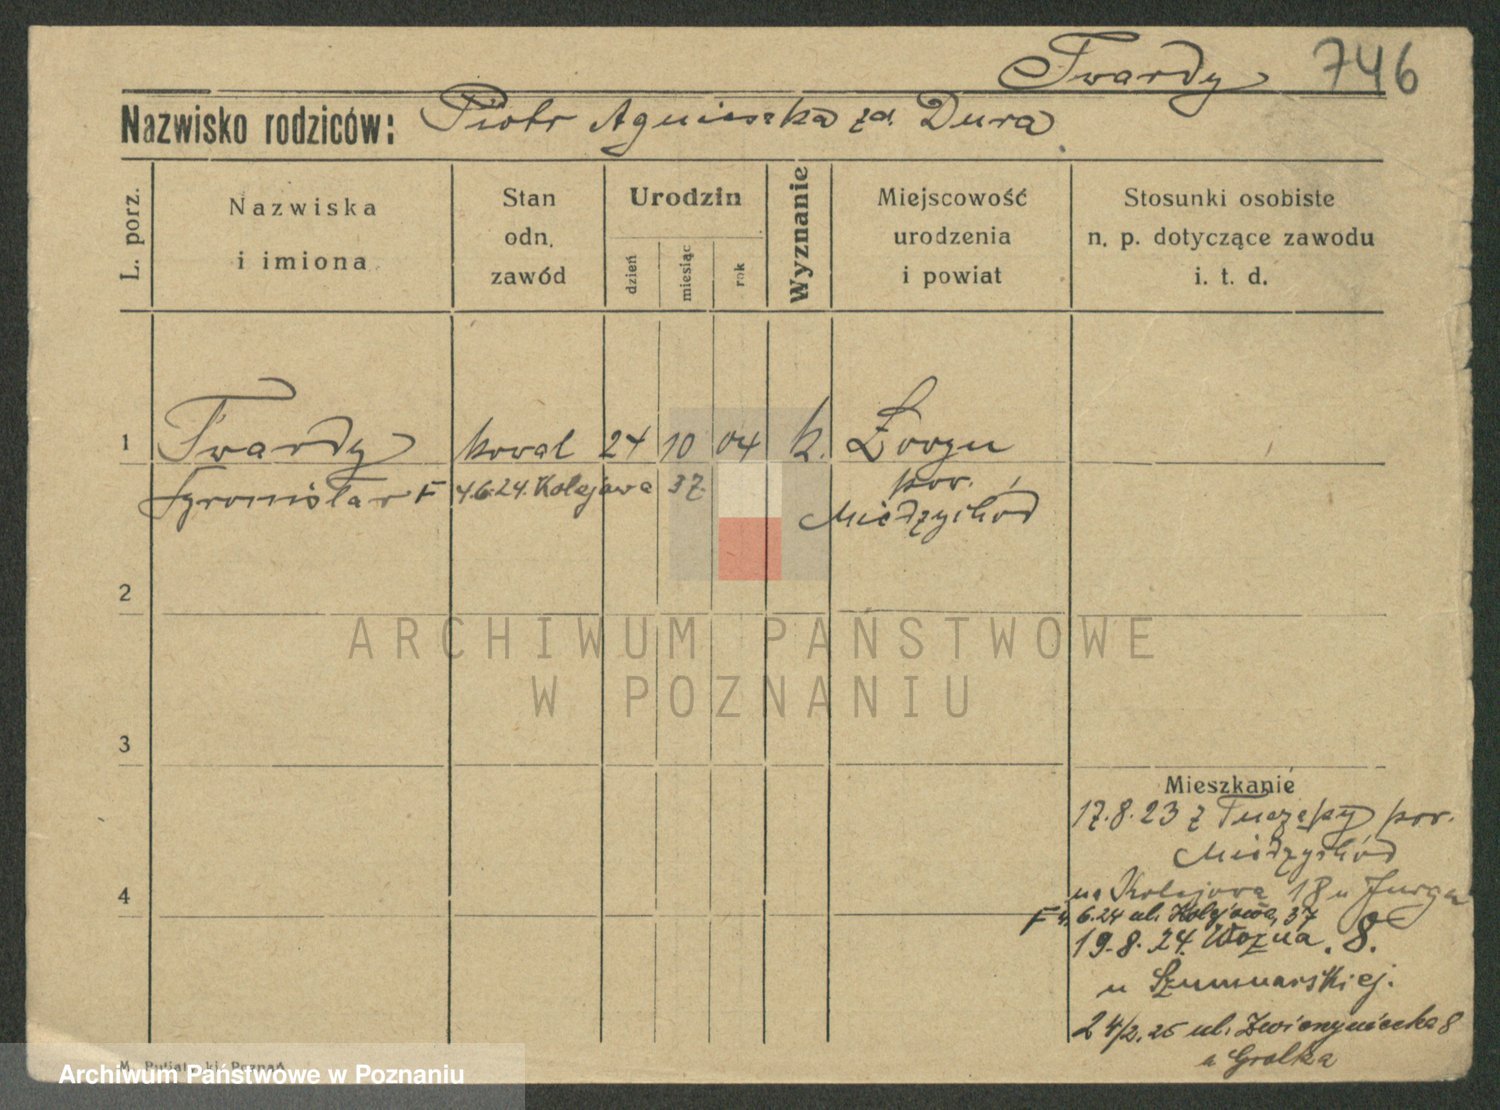 Twardy 746
Nazwisko rodziców: Piotr Agnieszka zd. Dura
L. porz.
Nazwiska
i imiona
Stan
odn.
zawód
Urodzin
dzień
miesiąc
rok
Wyznanie
Miejscowość
urodzenia
i powiat
Stosunki osobiste
n. p. dotyczące zawodu
i. t. d.
1 Twardy kowal 24 10 04 k.
F 4.6.24. Kolejowa 37. pow.
Międzychód
2
ARCHIWUM PAŃSTWOWE
W POZNANIU
3
Mieszkanie
17.8.23 z pow.
Międzychód
4
na Kolejowa 18 u Jurga
F 4.6.24 ul. Kolejowa, 37
19.8.24. Wozna. 8.
u
24/2.25 ul. Zwierzyniecka 8
u Grolka
Poznań
Archiwum Państwowe w Poznaniu